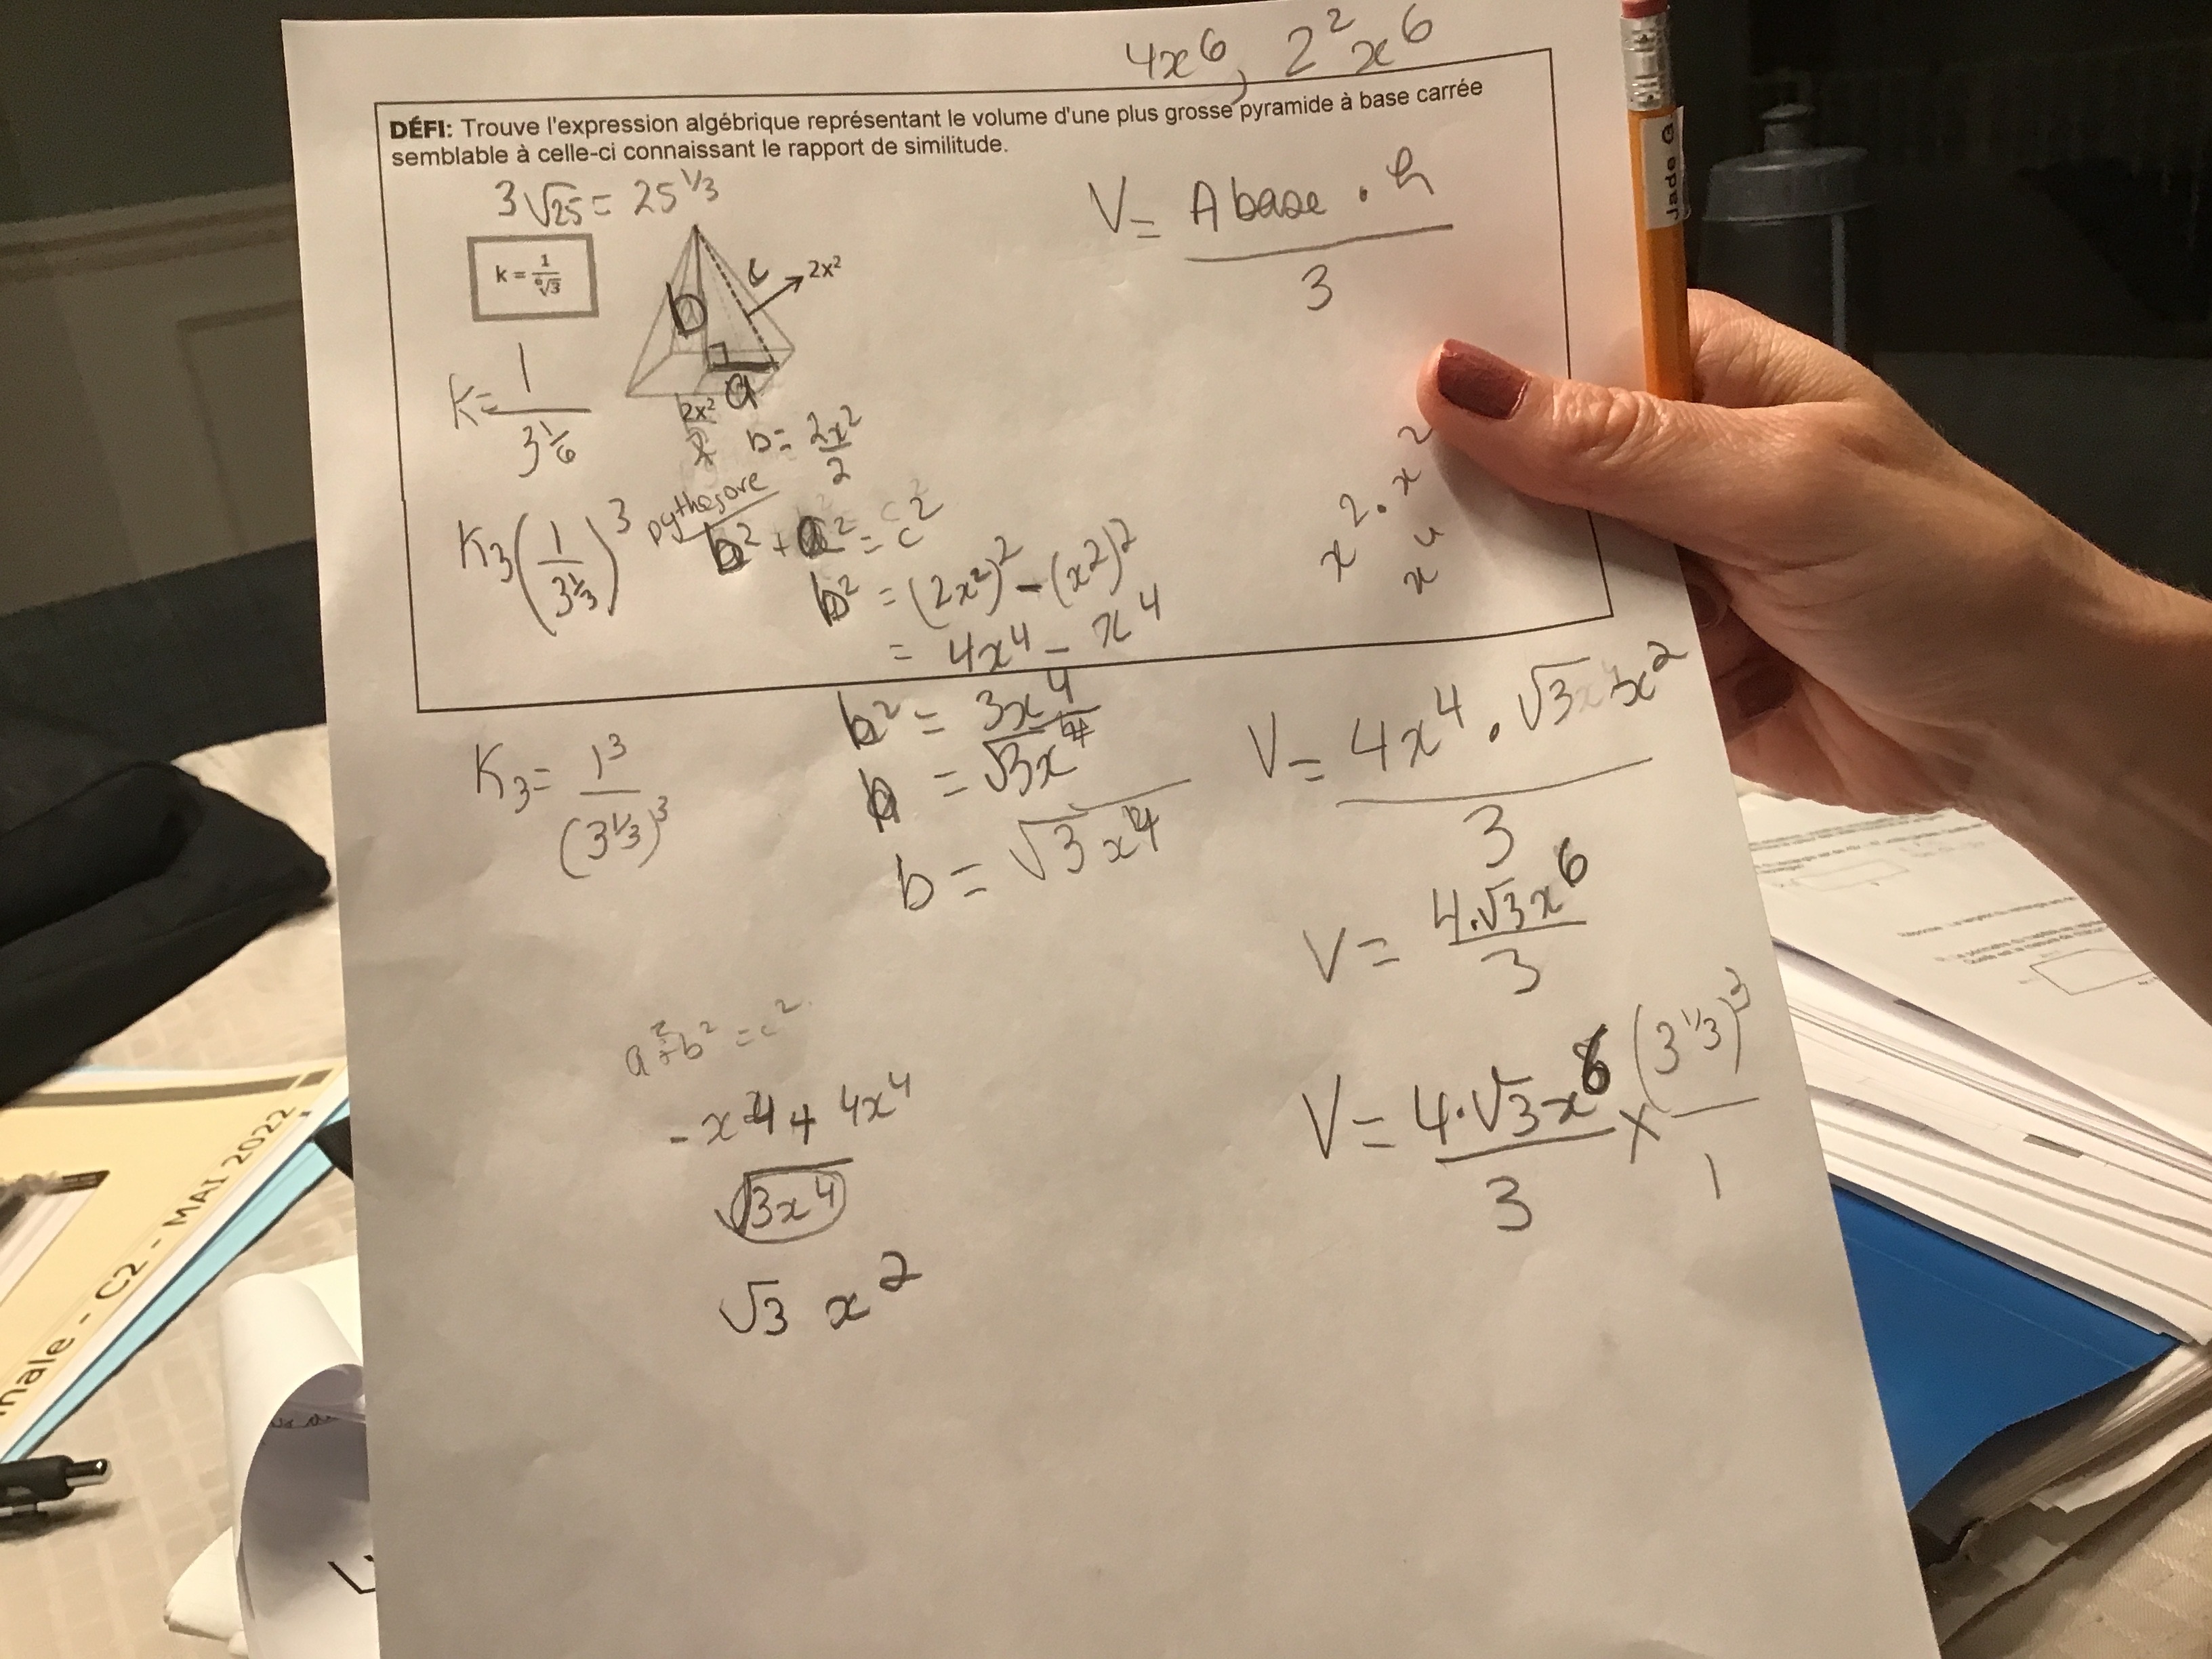 4x⁶, 2²x⁶
DÉFI: Trouve l'expression algébrique représentant le volume d'une plus grosse pyramide à base carrée
semblable à celle-ci connaissant le rapport de similitude.
3√25 = 25^1/3
V = A base · h / 3
k = 1/⁶√3
c
2x²
b
a
2x²
k = 1 / 3^1/6
b = 2x²/2
pythagore
K3 (1 / 3^1/3)³
b² + a² = c²
b² = (2x²)² - (x²)²
= 4x⁴ - x⁴
x² · x²
x⁴
b² = 3x⁴
b = √3x⁴
b = √3x⁴
K3 = 1³ / (3^1/3)³
V = 4x⁴ · √3 x² / 3
V = 4·√3x⁶ / 3
V = 4·√3x⁶ / 3 x (3^1/3)³ / 1
a² + b² = c²
-x⁴ + 4x⁴
√3x⁴
√3 x²
Jade G
nale - C2 - MAI 2022